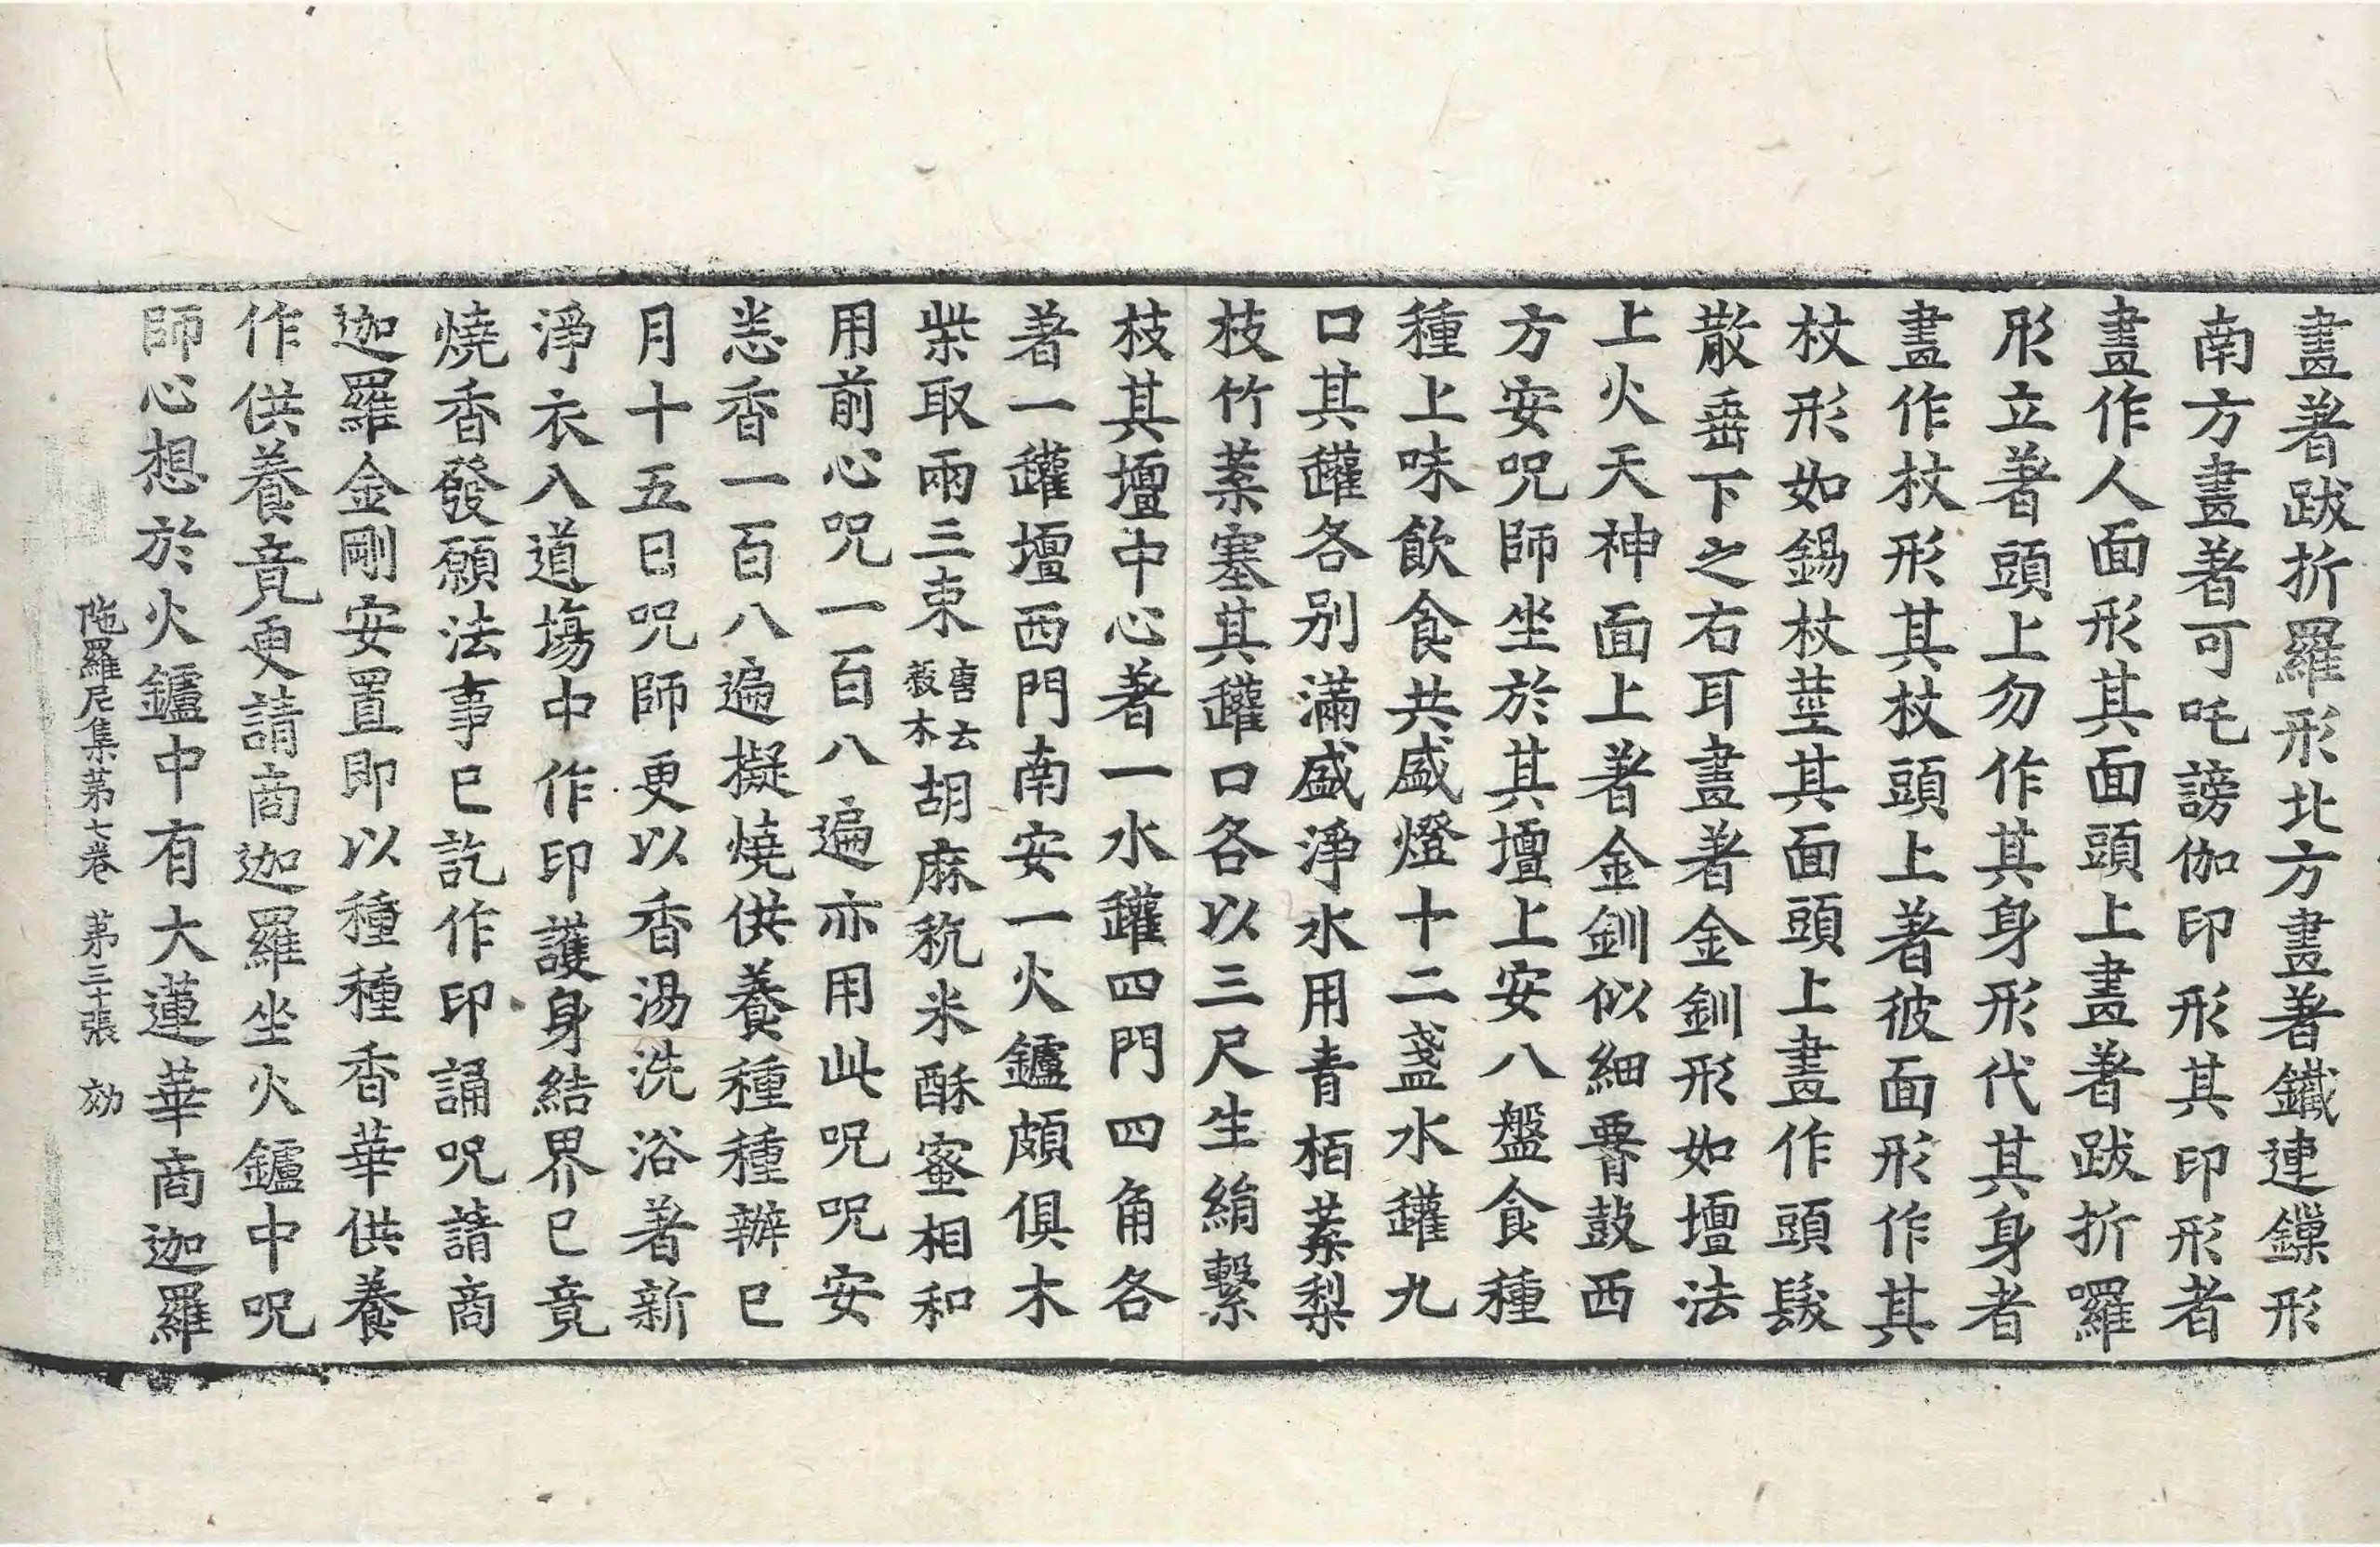 畫著跋折羅形北方畫著鐵連鏁形
南方畫著可吒謗伽印形其印形者
畫作人面形其面頭上畫著跋折囉
形立著頭上勿作其身形代其身者
畫作杖形其杖頭上著彼面形作其
杖形如錫杖莖其面頭上畫作頭髮
散垂下之右耳畫著金釧形如壇法
上火天神面上著金釧似細腰鼓西
方安呪師坐於其壇上安八盤食種
種上味飲食共盛燈十二盞水罐九
口其罐各別滿盛淨水用青栢葉梨
枝竹葉塞其罐口各以三尺生絹繫
枝其壇中心著一水罐四門四角各
著一罐壇西門南安一火鑪頗俱木
柴取兩三束唐云穀木胡麻粇米酥蜜相和
用前心呪一百八遍亦用此呪呪安
悉香一百八遍擬燒供養種種辦已
月十五日呪師更以香湯洗浴著新
淨衣入道場中作印護身結界已竟
燒香發願法事已訖作印誦呪請商
迦羅金剛安置即以種種香華供養
作供養竟更請商迦羅坐火鑪中呪
師心想於火鑪中有大蓮華商迦羅
陁羅尼集第七卷 第三十張 効